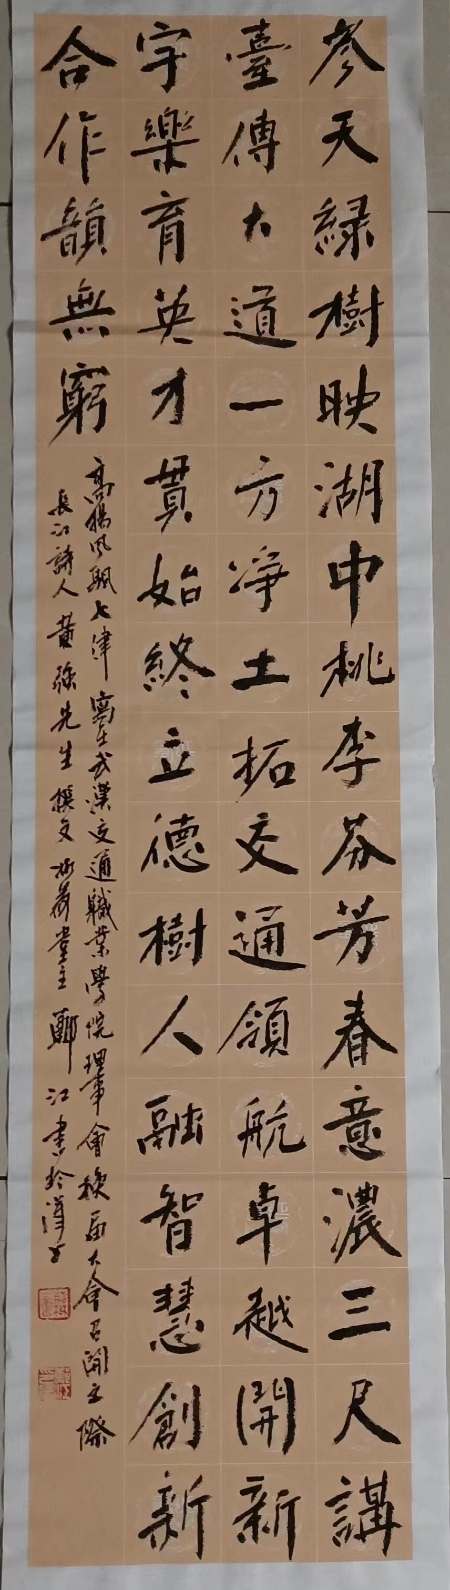 參天緑樹映湖中桃李芬芳春意濃三尺講
臺傳大道一方凈土拓交通領航卓越開新
宇樂育英才貫始終立德樹人融智慧創新
合作韻無窮
高揚風颿七律寫在武漢交通職業學院理事會換届大會召開之際
長江詩人黄强先生撰文 荷堂主鄭江書於漢上